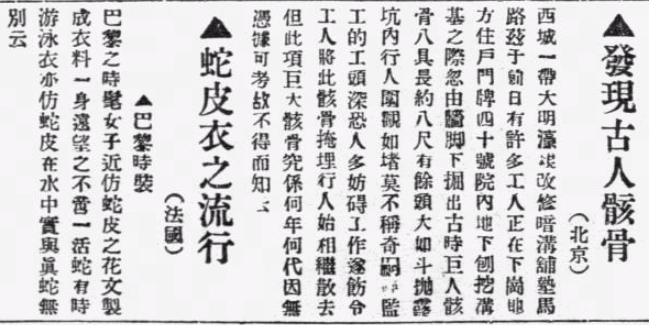 ▲發現古人骸骨
（北京）
西城一帶大明濠改修暗溝舖墊馬
路茲于前日有許多工人正在下崗地
方住戶門牌四十號院內地下刨挖溝
基之際忽由牆脚下掘出古時巨人骸
骨八具長約八尺有餘頭大如斗拋露
坑內行人圍觀如堵莫不稱奇嗣監
工的工頭深恐人多妨碍工作遂飭令
工人將此骸骨掩埋行人始相繼散去
但此項巨大骸骨究係何年何代因無
憑據可考故不得而知云
▲蛇皮衣之流行
（法國）
▲巴黎時裝
巴黎之時髦女子近仿蛇皮之花文製
成衣料一身遠望之不啻一活蛇有時
游泳衣亦仿蛇皮在水中實與眞蛇無
別云